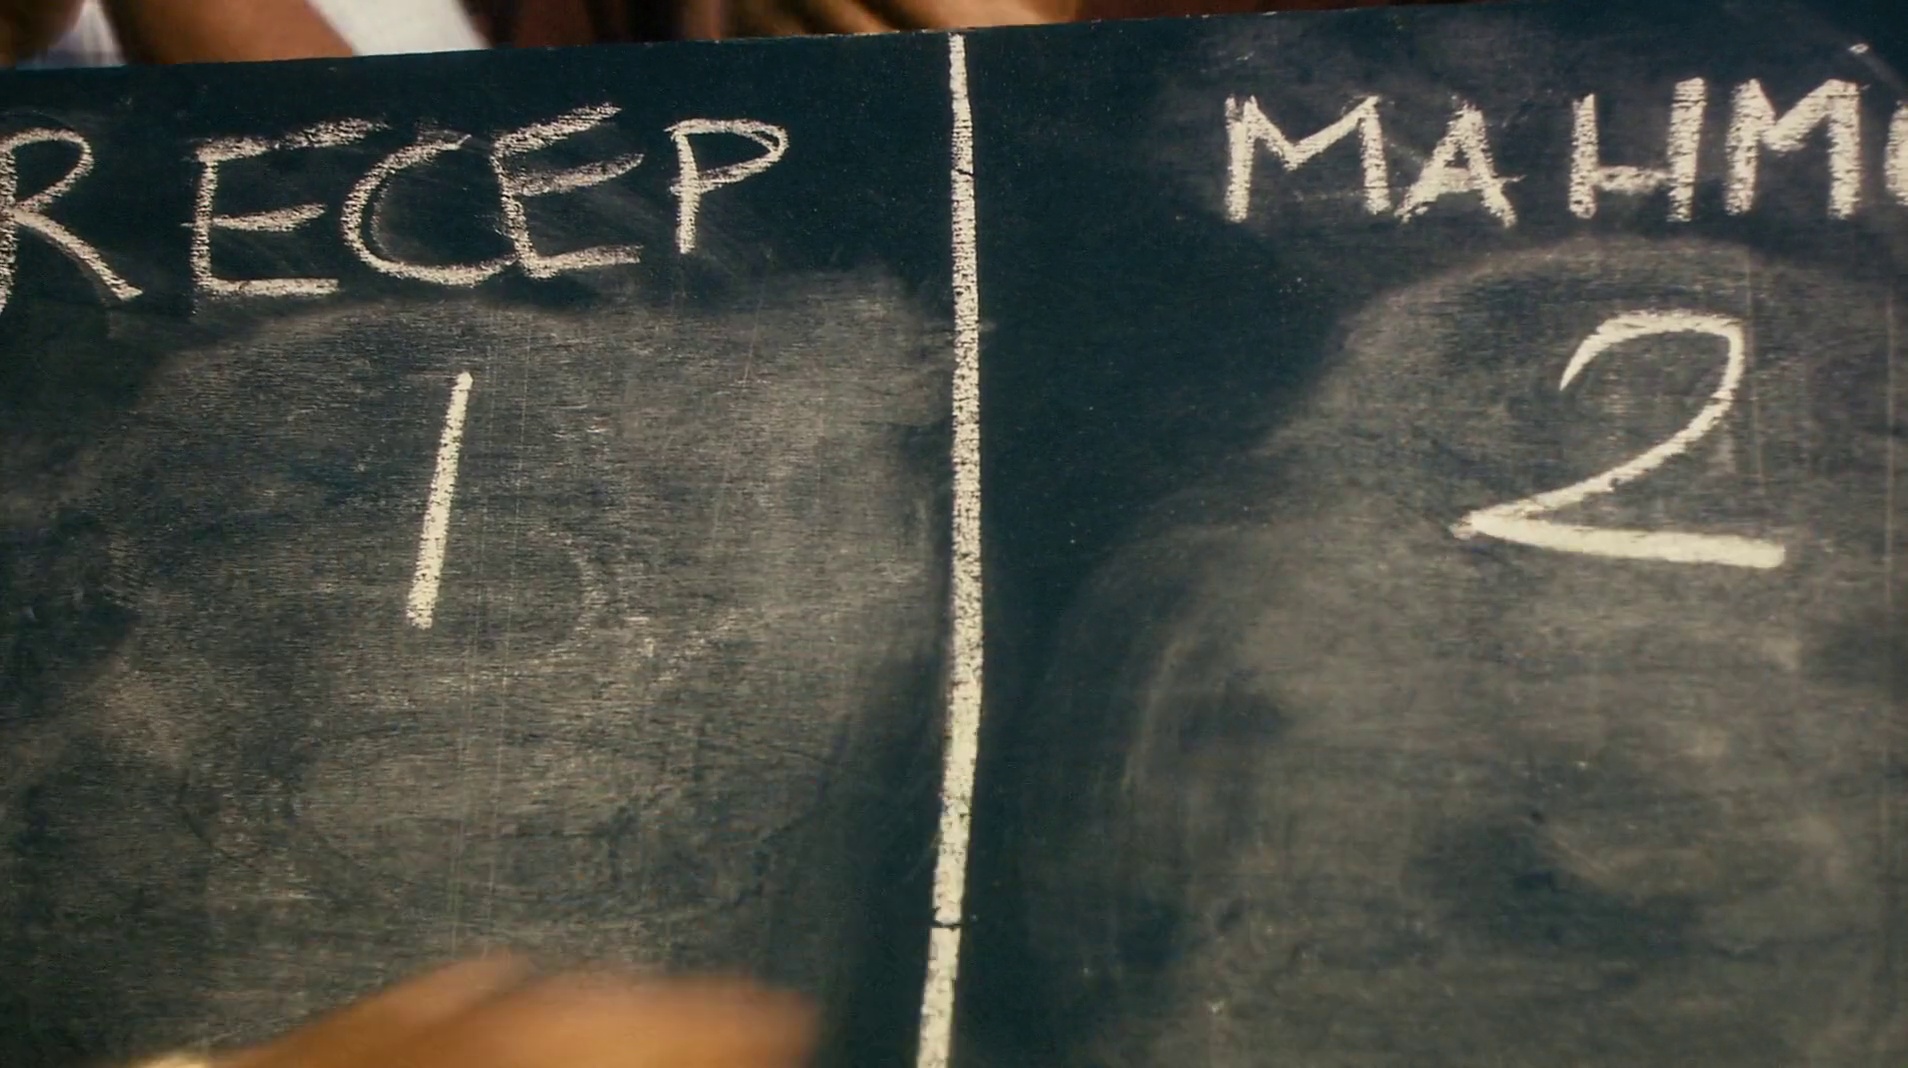 RECEP MAHM
1 2